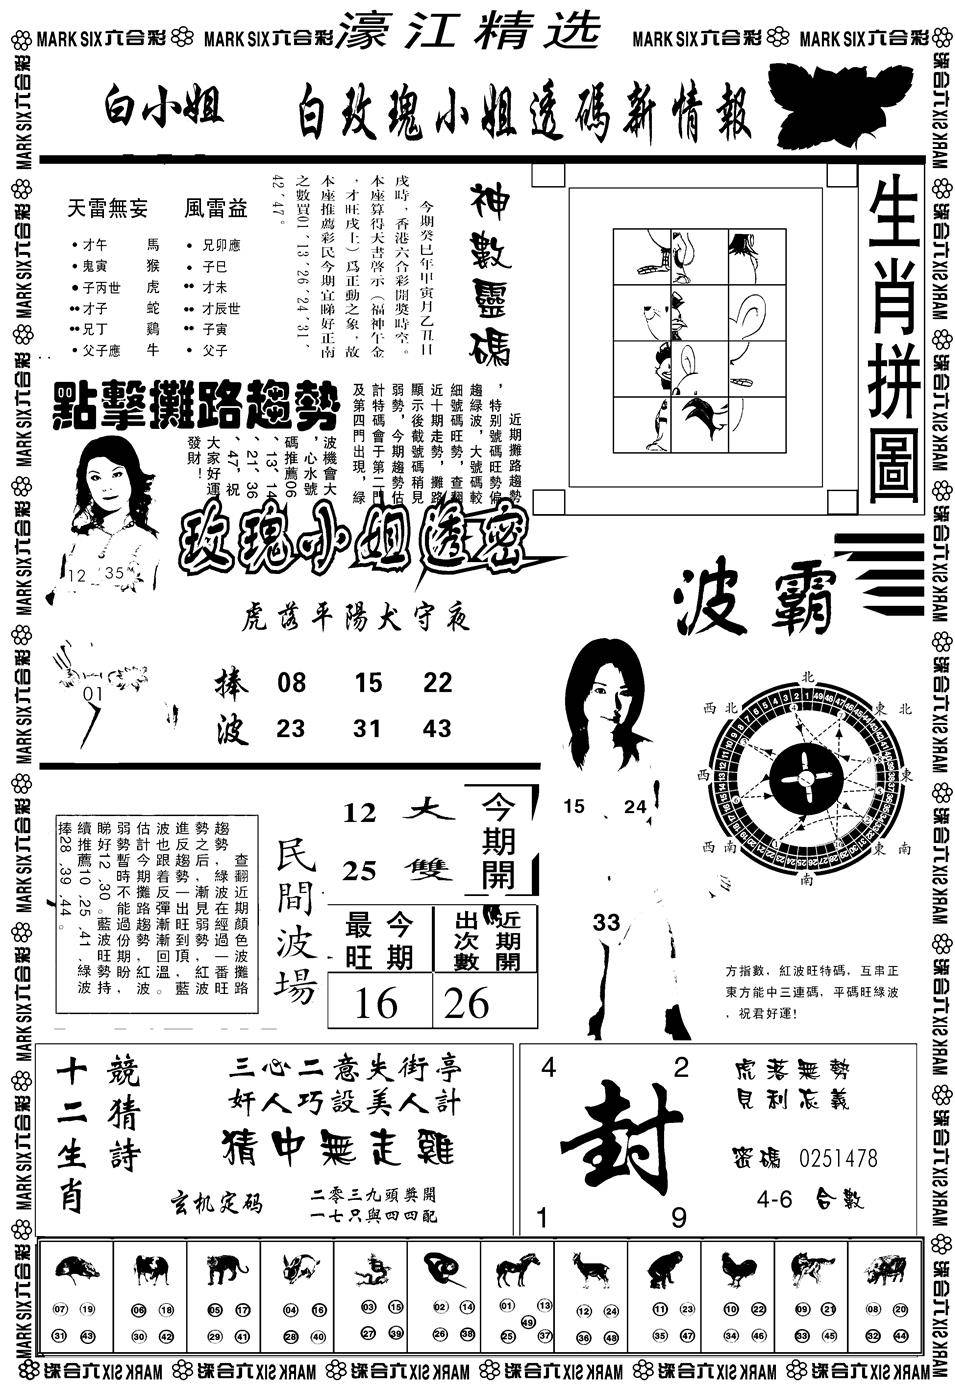 濠江精选
MARK SIX六合彩
MARK SIX六合彩
MARK SIX六合彩
MARK SIX六合彩
白小姐
白玫瑰小姐透碼新情報
天雷無妄
風雷益
才午 馬
鬼寅 猴
子丙世 虎
才子 蛇
兄丁 鷄
父子應 牛
兄卯應
子巳
才未
才辰世
子寅
父子
神數靈碼
今期癸巳年甲寅月乙丑日
戌時，香港六合彩開獎時空。
本座算得天書啓示（福神午金
，才旺戌上）爲正動之象，故
本座推薦彩民今期宜睇好正南
之數買01、13、26、24、31、
42、47。
生肖拼圖
點擊攤路趨勢
近期攤路趨勢
，特别號碼旺勢偏
趨綠波，大號碼較
細號碼旺勢，查翻
近十期走勢，攤路
顯示後截號碼稍見
弱勢，今期趨勢估
計特碼會于第二門
及第四門出現，綠
波機會大
，心水號
碼推薦06
、13、14
、21、36
、47，祝
大家好運
發財！
12 35
01
玫瑰小姐透密
虎落平陽犬守夜
捧 08 15 22
波 23 31 43
波霸
北
東北
東
東南
南
西南
西
西北
15 24
33
方指數，紅波旺特碼，互串正
東方能中三連碼，平碼旺綠波
，祝君好運！
查翻近期顔色波攤路
趨勢，綠波在經過一番旺
勢之后，漸見弱勢，紅波
進反趨勢一出旺到頂，藍
波也跟着反彈漸漸回溫。
估計今期攤路趨勢紅波
弱勢暫時不能過份期盼，
睇好12、30。藍波旺勢持
續推薦10、25、41、綠波
捧28、39、44。
民間波場
12 大
25 雙
今期開
最旺 今期
出次數 近期開
16 26
十二生肖
競猜詩
三心二意失街亭
奸人巧設美人計
猜中無走雞
玄机定码
二零三九頭獎開
一七只與四四配
4 2
封
1 9
虎落無勢
見利忘義
密碼 0251478
4-6 合數
07 19 31 43
06 18 30 42
05 17 29 41
04 16 28 40
03 15 27 39
02 14 26 38
01 13 49 25 37
12 24 36 48
11 23 35 47
10 22 34 46
09 21 33 45
08 20 32 44